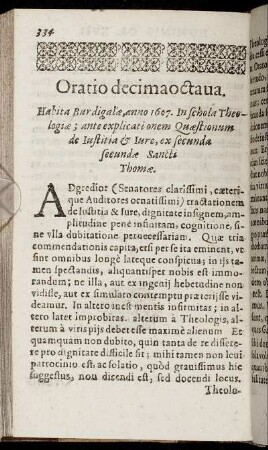 334
Oratio decimaoctaua.
Habita Burdigalæ, anno 1607. In schola Theo-
logiæ ; ante explicationem Quæstionum
de Iustitia & Iure, ex secunda
secundæ Sancti
Thomæ.
ADgredior (Senatores clarissimi, cæteri-
que Auditores ornatissimi) tractationem
de Iustitia & Iure, dignitate insignem, am-
plitudine penè infinitam, cognitione, si-
ne vlla dubitatione pernecessariam. Quæ tria
commendationis capita, etsi per se ita eminent, vt
sint omnibus longè lateque conspicua; in ijs ta-
men spectandis, aliquantisper nobis est immo-
randum; ne illa, aut ex ingenij hebetudine non
vidisse, aut ex simulato contemptu præterijsse vi-
deamur. In altero inest mentis infirmitas; in al-
tero latet improbitas. alterum à Theologis, al-
terum à viris pijs debet esse maximè alienum Et
quamquam non dubito, quin tanta de re dissere-
re pro dignitate difficile sit ; mihi tamen non leui
patrocinio est ac solatio, quòd grauissimus hic
suggestus, non dicendi est, sed docendi locus.
Theolo-